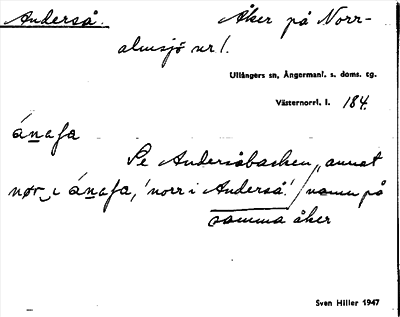 Anderså. Åker på Norr-
almsjö nr 1.
Ullångers sn, Ångermanl. s. doms. tg.
Västernorrl. l. 184.
ánafa
Se Andersåbacken, annat
nør i ánafa, 'norr i Anderså'. / namn på
samma åker
Sven Hiller 1947